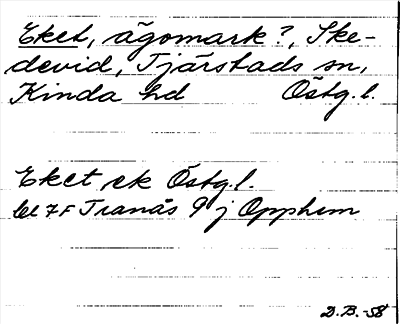 Eket, ägomark?, Ske-
devid, Tjärstads sn,
Kinda hd Östg.l.
Eket ek Östg.l.
bl 7F Tranås 9 j Opphem
D.B.-58